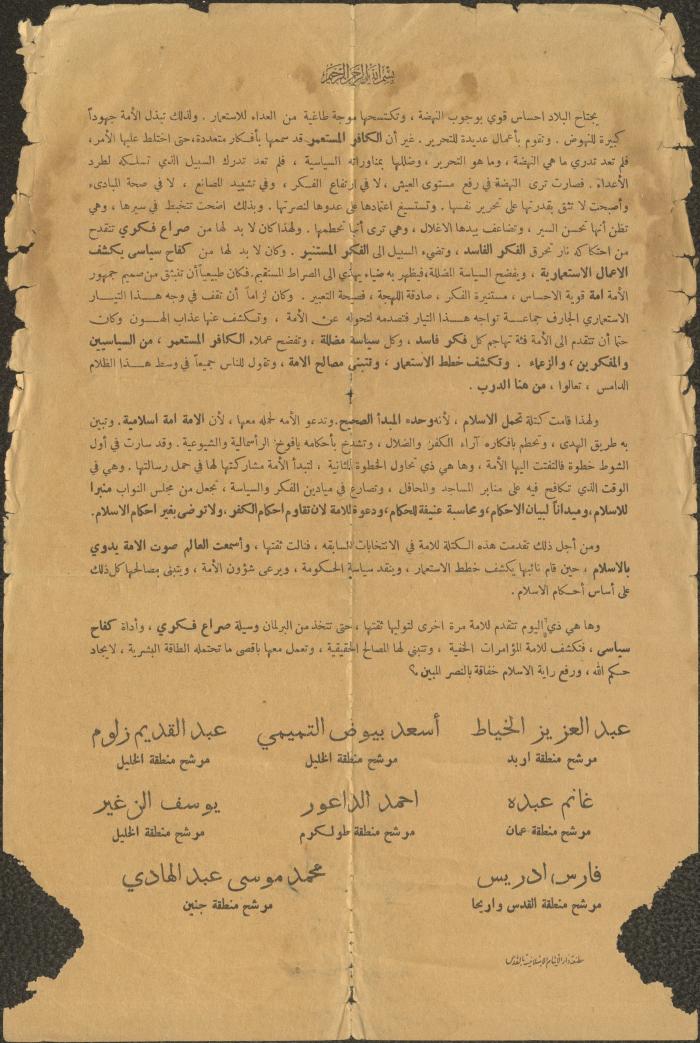 بسم الله الرحمن الرحيم
يجتاح البلاد احساس قوي بوجوب النهضة ، وتكتسحها موجة طاغية من العداء للاستعمار . ولذلك تبذل الأمة جهوداً
كبيرة للنهوض . وتقوم بأعمال عديدة للتحرير . غير أن الكافر المستعمر قد سممها بأفكار متعددة، حتى اختلط عليها الأمر،
فلم تعد تدري ما هي النهضة ، وما هو التحرير ، وضللها بمناوراته السياسية ، فلم تعد تدرك السبيل الذي تسلكه لطرد
الأعداء . فصارت ترى النهضة في رفع مستوى العيش ، لا في ارتفاع الفكر ، وفي تشييد المصانع ، لا في صحة المبادىء
وأصبحت لا تثق بقدرتها على تحرير نفسها . وتستسيغ اعتمادها على عدوها لنصرتها . وبذلك اضحت تتخبط في سيرها ، وهي
تظن أنها تحسن السير ، وتضاعف بيدها الاغلال ، وهي ترى أنها تحطمها . ولهذا كان لا بد لها من صراع فكري تنقدح
من احتكاكه نار تحرق الفكر الفاسد ، وتضيء السبيل الى الفكر المستنير . وكان لا بد لها من كفاح سياسي يكشف
الاعمال الاستعمارية ، ويفضح السياسة المضللة، فيظهر به ضياء يهدي الى الصراط المستقيم. فكان طبيعياً أن تنبثق من صميم جمهور
الأمة امة قوية الاحساس ، مستنيرة الفكر ، صادقة اللهجة ، فصيحة التعبير . وكان لزاماً أن تقف في وجه هـذا التيـار
الاستعماري الجارف جماعـة تواجه هـذا التيار فتصدمه لتحوله عن الأمة ، وتكشف عنها عذاب الهـون وكان
حتماً أن تتقدم الى الأمة فئة تهاجم كل فكر فاسد ، وكل سياسة مضللة ، وتفضح عملاء الكافر المستعمر ، من السياسيين
والمفكرين ، والزعماء . وتكشف خطط الاستعمار ، وتتبنى مصالح الامة ، وتقول للناس جميعاً في وسط هـذا الظلام
الدامس ، تعالوا ، من هنا الدرب .
ولهذا قامت كتلة تحمل الاسلام ، لأنه وحده المبدأ الصحيح. وتدعو الأمه لحمله معها ، لأن الامة امة اسلامية . وتبين
به طريق الهدى ، وتحطم بافكاره آراء الكفر والضلال ، وتشدخ بأحكامه يافوخ الرأسمالية والشيوعية . وقد سارت في أول
الشوط خطوة فالتفتت اليها الأمة ، وها هي ذي تحاول الخطوة الثانية ، لتبدأ الأمة مشاركتها لها في حمل رسالتها . وهي في
الوقت الذي تكافح فيه على منابر المساجد والمحافل ، وتصارع في ميادين الفكر والسياسة ، تجعل من مجلس النواب منبرا
للاسلام، وميداناً لبيان الاحكام، ومحاسبة عنيفة للحكام، ودعوة للامة لان تقاوم احكام الكفر، ولا ترضى بغير احكام الاسلام.
ومن أجل ذلك تقدمت هذه الكتلة للامة في الانتخابات السابقه ، فنالت ثقتها ، وأسمعت العالم صوت الامة يدوي
بالاسلام ، حين قام نائبها يكشف خطط الاستعمار ، وينقد سياسة الحكومة ، ويرعى شؤون الأمة ، ويتبنى مصالحها كل ذلك
على أساس أحكام الاسلام .
وها هي ذي اليوم تتقدم للامة مرة اخرى لتوليها ثقتها ، حتى تتخذ من البرلمان وسيلة صراع فـكري ، وأداة كفاح
سياسي ، فتكشف للامة المؤامرات الخفية ، وتتبنى لها المصالح الحقيقية ، وتعمل معها باقصى ما تحتمله الطاقة البشرية ، لايجاد
حـكم الله ، ورفع راية الاسلام خفاقة بالنصر المبين ؟
عبد العزيز الخياط أسعد بيوض التميمي عبد القديم زلوم
مرشح منطقة اربد مرشح منطقة الخليل مرشح منطقة الخليل
غانم عبده احمد الداعور يوسف الزغير
مرشح منطقة عمان مرشح منطقة طولكرم مرشح منطقة الخليل
فارس ادريس محمد موسى عبد الهادي
مرشح منطقة القدس واريحا مرشح منطقة جنين
مطبعة دار الأيتام الاسلامية بالقدس